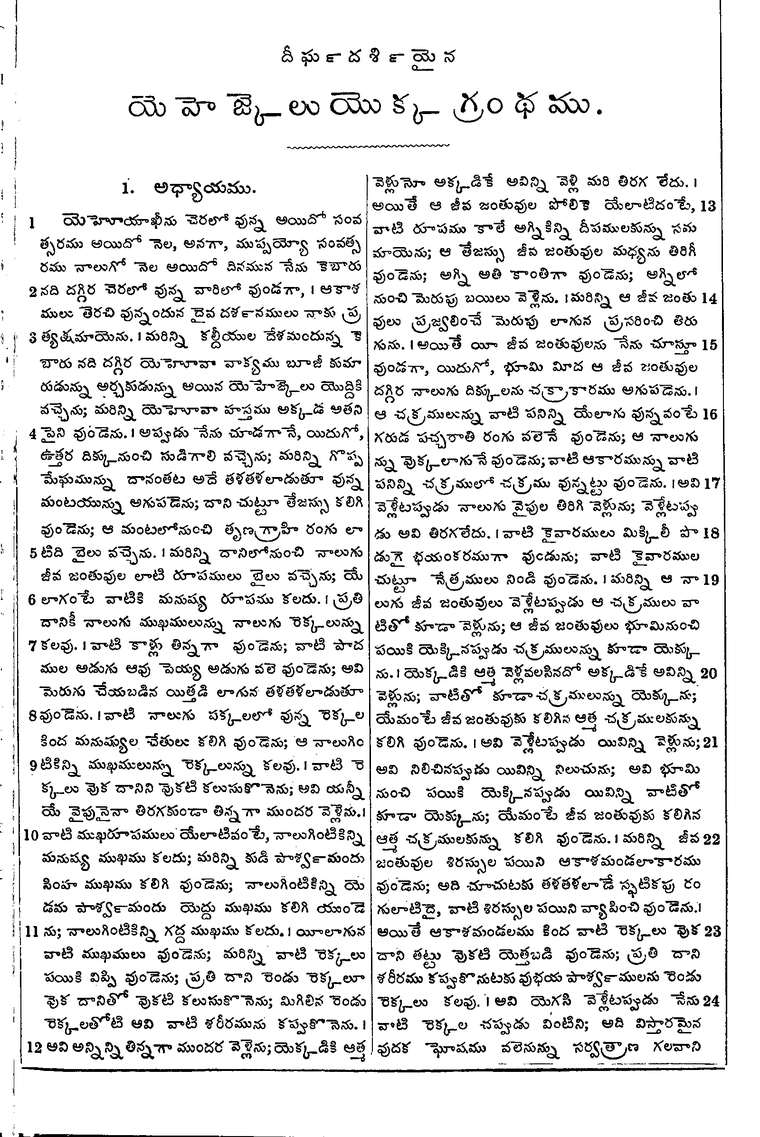 దీర్ఘదర్శియైన
యెహెజ్కెలుయొక్క గ్రంథము.
1. అధ్యాయము.
1 యెహోయాఖీను చెరలో వున్న అయిదో సంవ
త్సరము అయిదో నెల, అనగా, ముప్పయ్యో సంవత్స
రము నాలుగో నెల అయిదో దినమున నేను కెబారు
2 నది దగ్గిర చెరలో వున్న వారిలో వుండగా, । ఆకాశ
ములు తెరచి వున్నందున దైవ దర్శనములు నాకు ప్ర
3 త్యక్షమాయెను. । మరిన్ని కల్దీయుల దేశమందున్న కె
బారు నది దగ్గిర యెహోవా వాక్యము బూజీ కుమా
రుడున్ను అర్చకుడున్ను అయిన యెహెజ్కెలు యొద్దికి
వచ్చెను; మరిన్ని యెహోవా హస్తము అక్కడ అతని
4 పైని వుండెను. । అప్పుడు నేను చూడగానే, యిదుగో,
ఉత్తర దిక్కునుంచి సుడిగాలి వచ్చెను; మరిన్ని గొప్ప
మేఘమున్ను దానంతట అదే తళతళలాడుతూ వున్న
మంటయున్ను అగుపడెను; దాని చుట్టూ తేజస్సు కలిగి
వుండెను; ఆ మంటలోనుంచి తృణగ్రాహి రంగు లా
5 టిది బైలు వచ్చెను. । మరిన్ని దానిలోనుంచి నాలుగు
జీవ జంతువుల లాటి రూపములు బైలు వచ్చెను; యే
6 లాగంటే వాటికి మనుష్య రూపము కలదు. । ప్రతి
దానికీ నాలుగు ముఖములున్ను నాలుగు రెక్కలున్ను
7 కలవు. । వాటి కాళ్లు తిన్నగా వుండెను; వాటి పాద
ముల అడుగు ఆవు పెయ్య అడుగు వలె వుండెను; అవి
మెరుగు చేయబడిన యిత్తడి లాగున తళతళలాడుతూ
8 వుండెను. । వాటి నాలుగు పక్కలలో వున్న రెక్కల
కింద మనుష్యుల చేతులు కలిగి వుండెను; ఆ నాలుగిం
9 టికిన్ని ముఖములున్ను రెక్కలున్ను కలవు. । వాటి రె
క్కలు వొక దానిని వొకటి కలుసుకొనెను; అవి యన్నీ
యే వైపునైనా తిరగకుండా తిన్నగా ముందర వెళ్లెను. ।
10 వాటి ముఖరూపములు యేలాటివంటే, నాలుగింటికిన్ని
మనుష్య ముఖము కలదు; మరిన్ని కుడి పార్శ్వమందు
సింహ ముఖము కలిగి వుండెను; నాలుగింటికిన్ని యె
డమ పార్శ్వమందు యెద్దు ముఖము కలిగి యుండె
11 ను; నాలుగింటికిన్ని గద్ద ముఖము కలదు. । యీలాగున
వాటి ముఖములు వుండెను; మరిన్ని వాటి రెక్కలు
పయికి విప్పి వుండెను; ప్రతి దాని రెండు రెక్కలూ
వొక దానితో వొకటి కలుసుకొనెను; మిగిలిన రెండు
రెక్కలతోటి అవి వాటి శరీరమును కప్పుకొనెను. ।
12 అవి అన్నిన్ని తిన్నగా ముందర వెళ్లెను; యెక్కడికి ఆత్మ
వెళ్లునో అక్కడికే అవిన్ని వెళ్లి మరి తిరగ లేదు. ।
అయితే ఆ జీవ జంతువుల పోలికె యేలాటిదంటే, 13
వాటి రూపము కాలే అగ్నికిన్ని దీపములకున్ను సమ
మాయెను; ఆ తేజస్సు జీవ జంతువుల మధ్యను తిరిగీ
వుండెను; అగ్ని అతి కాంతిగా వుండెను; అగ్నిలో
నుంచి మెరుపు బయిలు వెళ్లెను. । మరిన్ని ఆ జీవ జంతు 14
వులు ప్రజ్వలించే మెరుపు లాగున ప్రసరించి తిరు
గును. । అయితే యీ జీవ జంతువులను నేను చూస్తూ 15
వుండగా, యిదుగో, భూమి మీద ఆ జీవ జంతువుల
దగ్గిర నాలుగు దిక్కులను చక్రాకారము అగుపడెను. ।
ఆ చక్రములున్ను వాటి పనిన్ని యేలాగు వున్నవంటే 16
గరుడ పచ్చరాతి రంగు వలెనే వుండెను; ఆ నాలుగు
న్ను వొక్కలాగునే వుండెను; వాటి ఆకారమున్ను వాటి
పనిన్ని చక్రములో చక్రము వున్నట్టు వుండెను. । అవి 17
వెళ్లేటప్పుడు నాలుగు వైపుల తిరిగి వెళ్లును; వెళ్లేటప్పు
డు అవి తిరగలేదు. । వాటి కైవారములు మిక్కిలీ పొ 18
డుగై భయంకరముగా వుండును; వాటి కైవారముల
చుట్టూ నేత్రములు నిండి వుండెను. । మరిన్ని ఆ నా 19
లుగు జీవ జంతువులు వెళ్లేటప్పుడు ఆ చక్రములు వా
టితో కూడా వెళ్లును; ఆ జీవ జంతువులు భూమినుంచి
పయికి యెక్కినప్పుడు చక్రములున్ను కూడా యెక్కు
ను. । యెక్కడికి ఆత్మ వెళ్లవలసినదో అక్కడికే అవిన్ని 20
వెళ్లును; వాటితో కూడా చక్రములున్ను యెక్కును;
యేమంటే జీవ జంతువుకు కలిగిన ఆత్మ చక్రములకున్ను
కలిగి వుండెను. । అవి వెళ్లేటప్పుడు యివిన్ని వెళ్లును; 21
అవి నిలిచినప్పుడు యివిన్ని నిలుచును; అవి భూమి
నుంచి పయికి యెక్కినప్పుడు యివిన్ని వాటితో
కూడా యెక్కును; యేమంటే జీవ జంతువుకు కలిగిన
ఆత్మ చక్రములకున్ను కలిగి వుండెను. । మరిన్ని జీవ 22
జంతువుల శిరస్సుల పయిని ఆకాశమండలాకారము
వుండెను; అది చూచుటకు తళతళలాడే స్ఫటికపు రం
గులాటిదై, వాటి శిరస్సుల పయిని వ్యాపించి వుండెను. ।
అయితే ఆకాశమండలము కింద వాటి రెక్కలు వొక 23
దాని తట్టు వొకటి యెత్తబడి వుండెను; ప్రతి దాని
శరీరము కప్పుకొనుటకు వుభయ పార్శ్వములను రెండు
రెక్కలు కలవు. । అవి యెగసి వెళ్లేటప్పుడు నేను 24
వాటి రెక్కల చప్పుడు వింటిని; అది విస్తారమైన
వుదక ఘోషము వలెనున్ను సర్వత్రాణ గలవాని